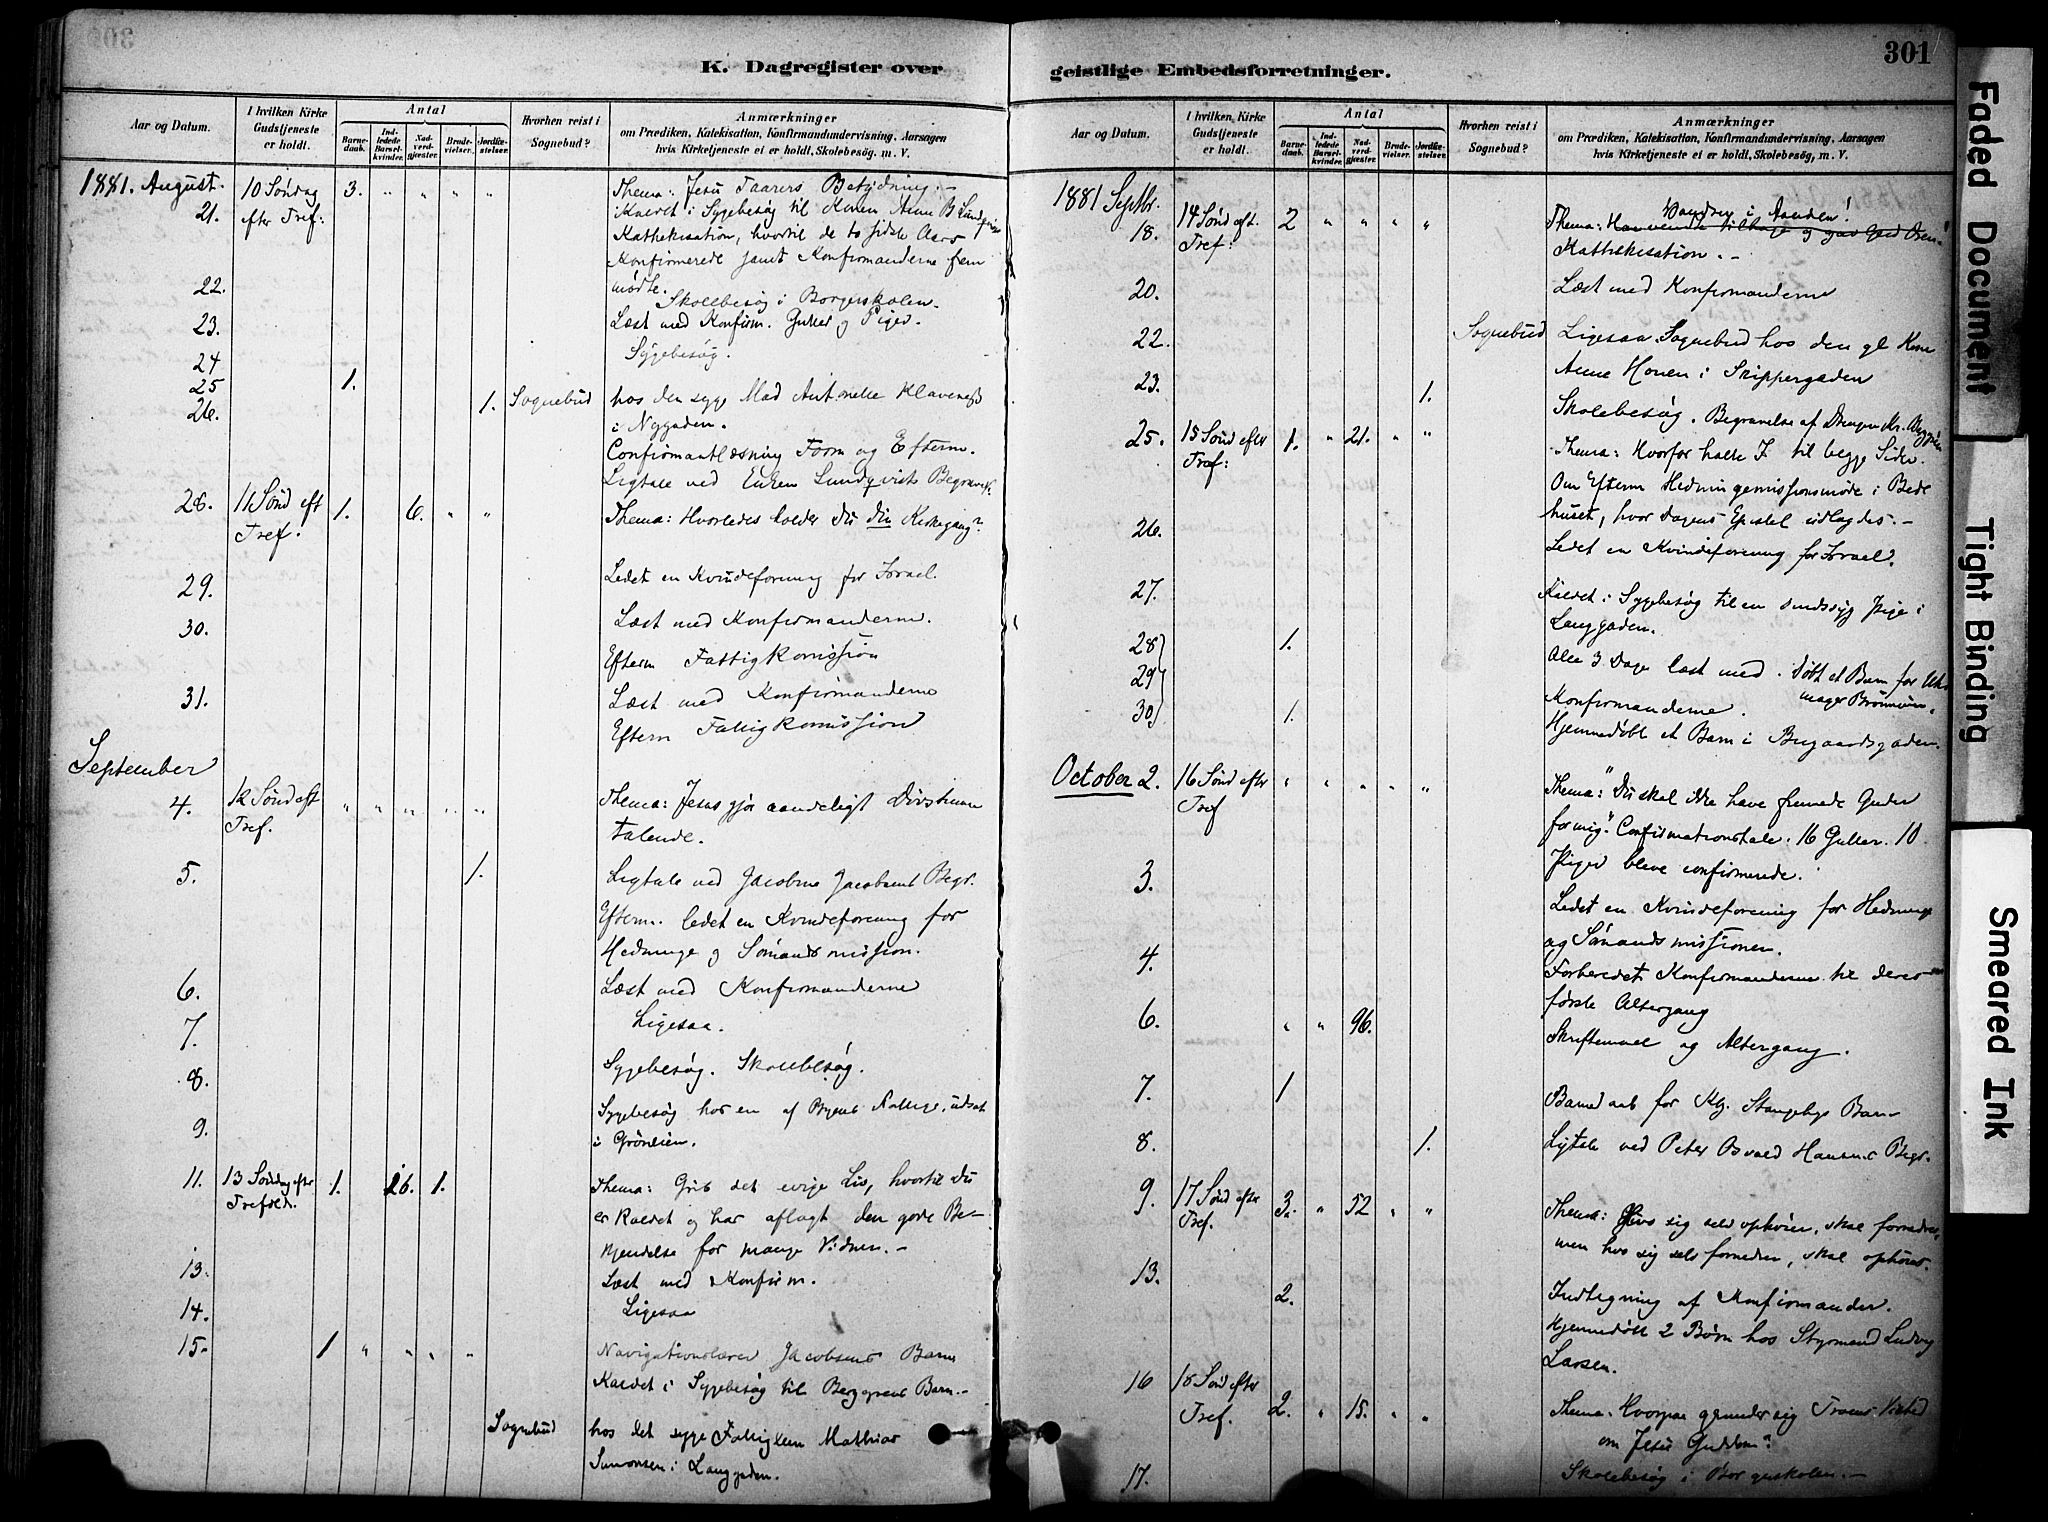 301
K. Dagregister over
Aar og Datum.
I hvilken Kirke Gudstjeneste er holdt.
Antal
Barnedaab.
Indledede Barselkvinder.
Nadverdgjester.
Brudevielser.
Jordfæstelser.
Hvorhen reist i Sognebud?
Anmærkninger
om Prædiken, Katekisation, Konfirmandundervisning, Aarsagen
hvis Kirketjeneste ei er holdt, Skolebesøg, m. V.
1881. August.
21. 10 Søndag 3. " " " " Thema: Jesu Taarers Betydning. –
efter Tref: Kaldet i Sygebesøg til Konen Anne B Lundqvist
Kathekisation, hvortil de to sidste Aars
Konfirmerede samt Konfirmanderne frem
mødte.
22. Skolebesøg i Borgerskolen.
23. Læst med Konfirm. Gutter og Piger.
24 Sygebesøg.
25 1.
26. 1. Sognebud hos den syge Mad Antonette Klaveness
i Nygaden.
Confirmantlæsning Form og Efterm.
Ligtale ved Enken Lundqvists Begravel.
28. 11 Sønd eft 1. 6. " " Thema: Hvorledes holder du din Kirkegang?
Tref.
29. Ledet en Kvindeforening for Israel.
30. Læst med Konfirmanderne.
Efterm Fattigkomission
31. Læst med Konfirmanderne
Efterm Fattigkomission
September
4. 12 Sønd eft " " " " " Thema: Jesus gjør aandeligt Døvstumme
Tref. talende.
5. 1. Ligtale ved Jacobine Jacobsens Begr.
Efterm. ledet en Kvindeforening for
Hedninge og Sømandsmission.
6. Læst med Konfirmanderne
7. Ligesaa.
8. Sygebesøg. Skolebesøg.
9. Sygebesøg hos en af Byens Fattige, udsat
i Grønlien.
11. 13 Søndag efter 1. 26. 1. Thema: Grib det evige Liv, hvortil Du
Trefold. er kaldet og har aflagt den gode Be-
kjendelse for mange Vidner. –
13. Læst med Konfirm.
14. Ligesaa
15. 1 " " " " Navigationslærer Jacobsens Barn
Kaldet i Sygebesøg til Berggrens Barn. –
Sognebud hos det syge Fattiglem Mathias
Simonsen i Langgaden.
geistlige Embedsforretninger.
Aar og Datum.
I hvilken Kirke Gudstjeneste er holdt.
Antal
Barnedaab.
Indledede Barselkvinder.
Nadverdgjester.
Brudevielser.
Jordfæstelser.
Hvorhen reist i Sognebud?
Anmærkninger
om Prædiken, Katekisation, Konfirmandundervisning, Aarsagen
hvis Kirketjeneste ei er holdt, Skolebesøg, m. V.
1881 Septbr.
Vandrer i Aanden!
18. 14 Sønd eft. 2 " " " " Thema: Han vendte tilbage og gav Gud Æren!
Tref: Kathekisation. –
20. Læst med Konfirmanderne
22. Sognebud Ligesaa. Sognebud hos den gl Kone
Anne Honen i Skippergaden
23. 1. Skolebesøg. Begravelse af Drengen Kr.
25. 15 Sønd efter 1. " 21. " " Thema: Hvorfor halte I til begge Sider.
Tref: Om Efterm Hedningemissionsmøde i Bede
huset, hvor Dagens Epistel udlagdes. –
26. Ledet en Kvindeforening for Israel.
27. Kaldet i Sygebesøg til en sindssyg Pige i
Langgaden.
28 1. Alle 3 Dage læst med. Døbt et Barn for Uhr
29 Konfirmanderne. mager
30 1. Hjemmedøbt et Barn i Bugaardsgaden.
October 2. 16 Sønd efter " " " " " Thema: "Du skal ikke have fremede Guder
Tref for mig." Confirmationstale. 16 Gutter. 10
Piger bleve confirmerede.
3. Ledet en Kvindeforening for Hedninge
og Sømandsmissionen.
4. Forberedet Konfirmanderne til deres
første Altergang
6. " " 96. Skriftemaal og Altergang.
7. 1 Barnedaab for Kjs. Stangebys Barn
8. 1. Ligtale ved Peter Osvald Hansens Begr.
9. 17 Sønd efter 3. " 52 " " Thema: Hvo sig selv ophøier, skal fornedres,
Tref. men hvo sig selv fornedrer, skal ophøies.
13. Indtegning af Konfirmander.
2. Hjemmedøbt 2 Børn hos Styrmand Ludvig
Larsen.
16 18 Sønd efter 2. " 15. " " Thema: Hvorpaa grunder sig Troens Vished
Tref. om Jesu Guddom?
17. Skolebesøg i Borgerskolen. –
Faded Document
Tight Binding
Smeared Ink